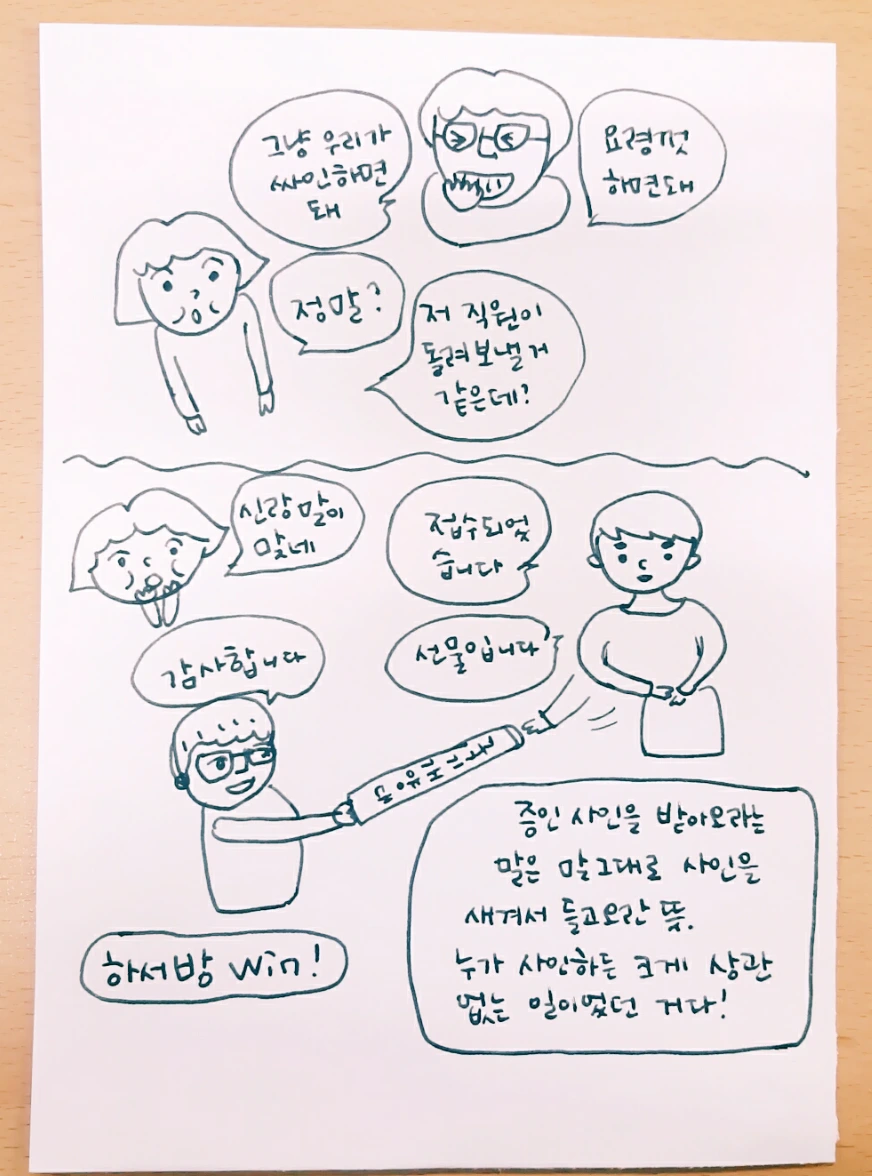 그냥 우리가
싸인하면
돼
요령껏
하면돼
정말?
저 직원이
돌려보낼거
같은데?
신랑말이
맞네
접수되었
습니다
감사합니다
선물입니다
하서방 Win!
증인 사인을 받아오라는
말은 말그대로 사인을
새겨서 들고오란 뜻.
누가 사인하든 크게 상관
없는 일이었던 거다!